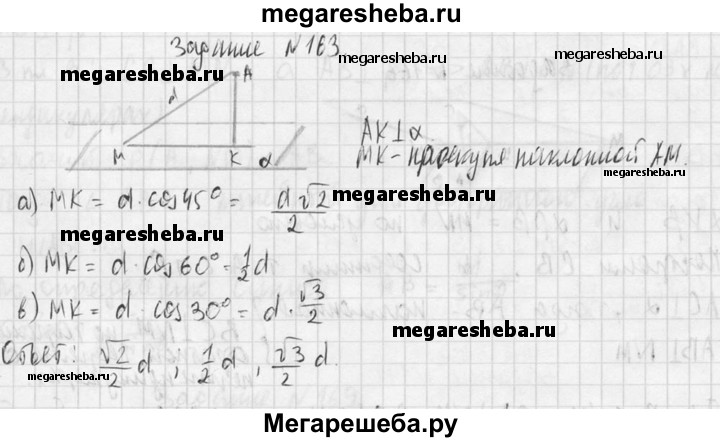 megaresheba.ru
Задание №163
megaresheba.ru
megaresheba.ru
A
d
M
K
α
AK⊥α
MK - проекция наклонной AM.
megaresheba.ru
а) MK = d · cos 45° = d√2/2
megaresheba.ru
megaresheba.ru
б) MK = d · cos 60° = 1/2 d.
в) MK = d · cos 30° = d · √3/2
megaresheba.ru
Ответ: √2/2 d, 1/2 d, √3/2 d.
megaresheba.ru
megaresheba.ru
Мегарешеба.ру